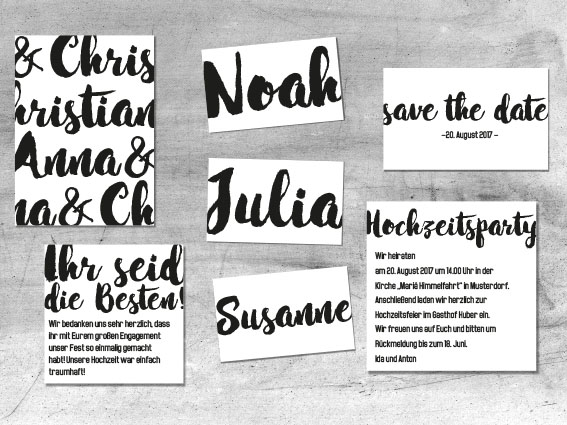 & Chris
hristian
Anna &
na & Ch
Ihr seid
die Besten!
Wir bedanken uns sehr herzlich, dass
ihr mit Eurem großen Engagement
unser Fest so einmalig gemacht
habt! Unsere Hochzeit war einfach
traumhaft!
Noah
Julia
Susanne
save the date
–20. August 2017 –
Hochzeitsparty
Wir heiraten
am 20. August 2017 um 14.00 Uhr in der
Kirche „Mariä Himmelfahrt" in Musterdorf.
Anschließend laden wir herzlich zur
Hochzeitsfeier im Gasthof Huber ein.
Wir freuen uns auf Euch und bitten um
Rückmeldung bis zum 18. Juni.
Ida und Anton